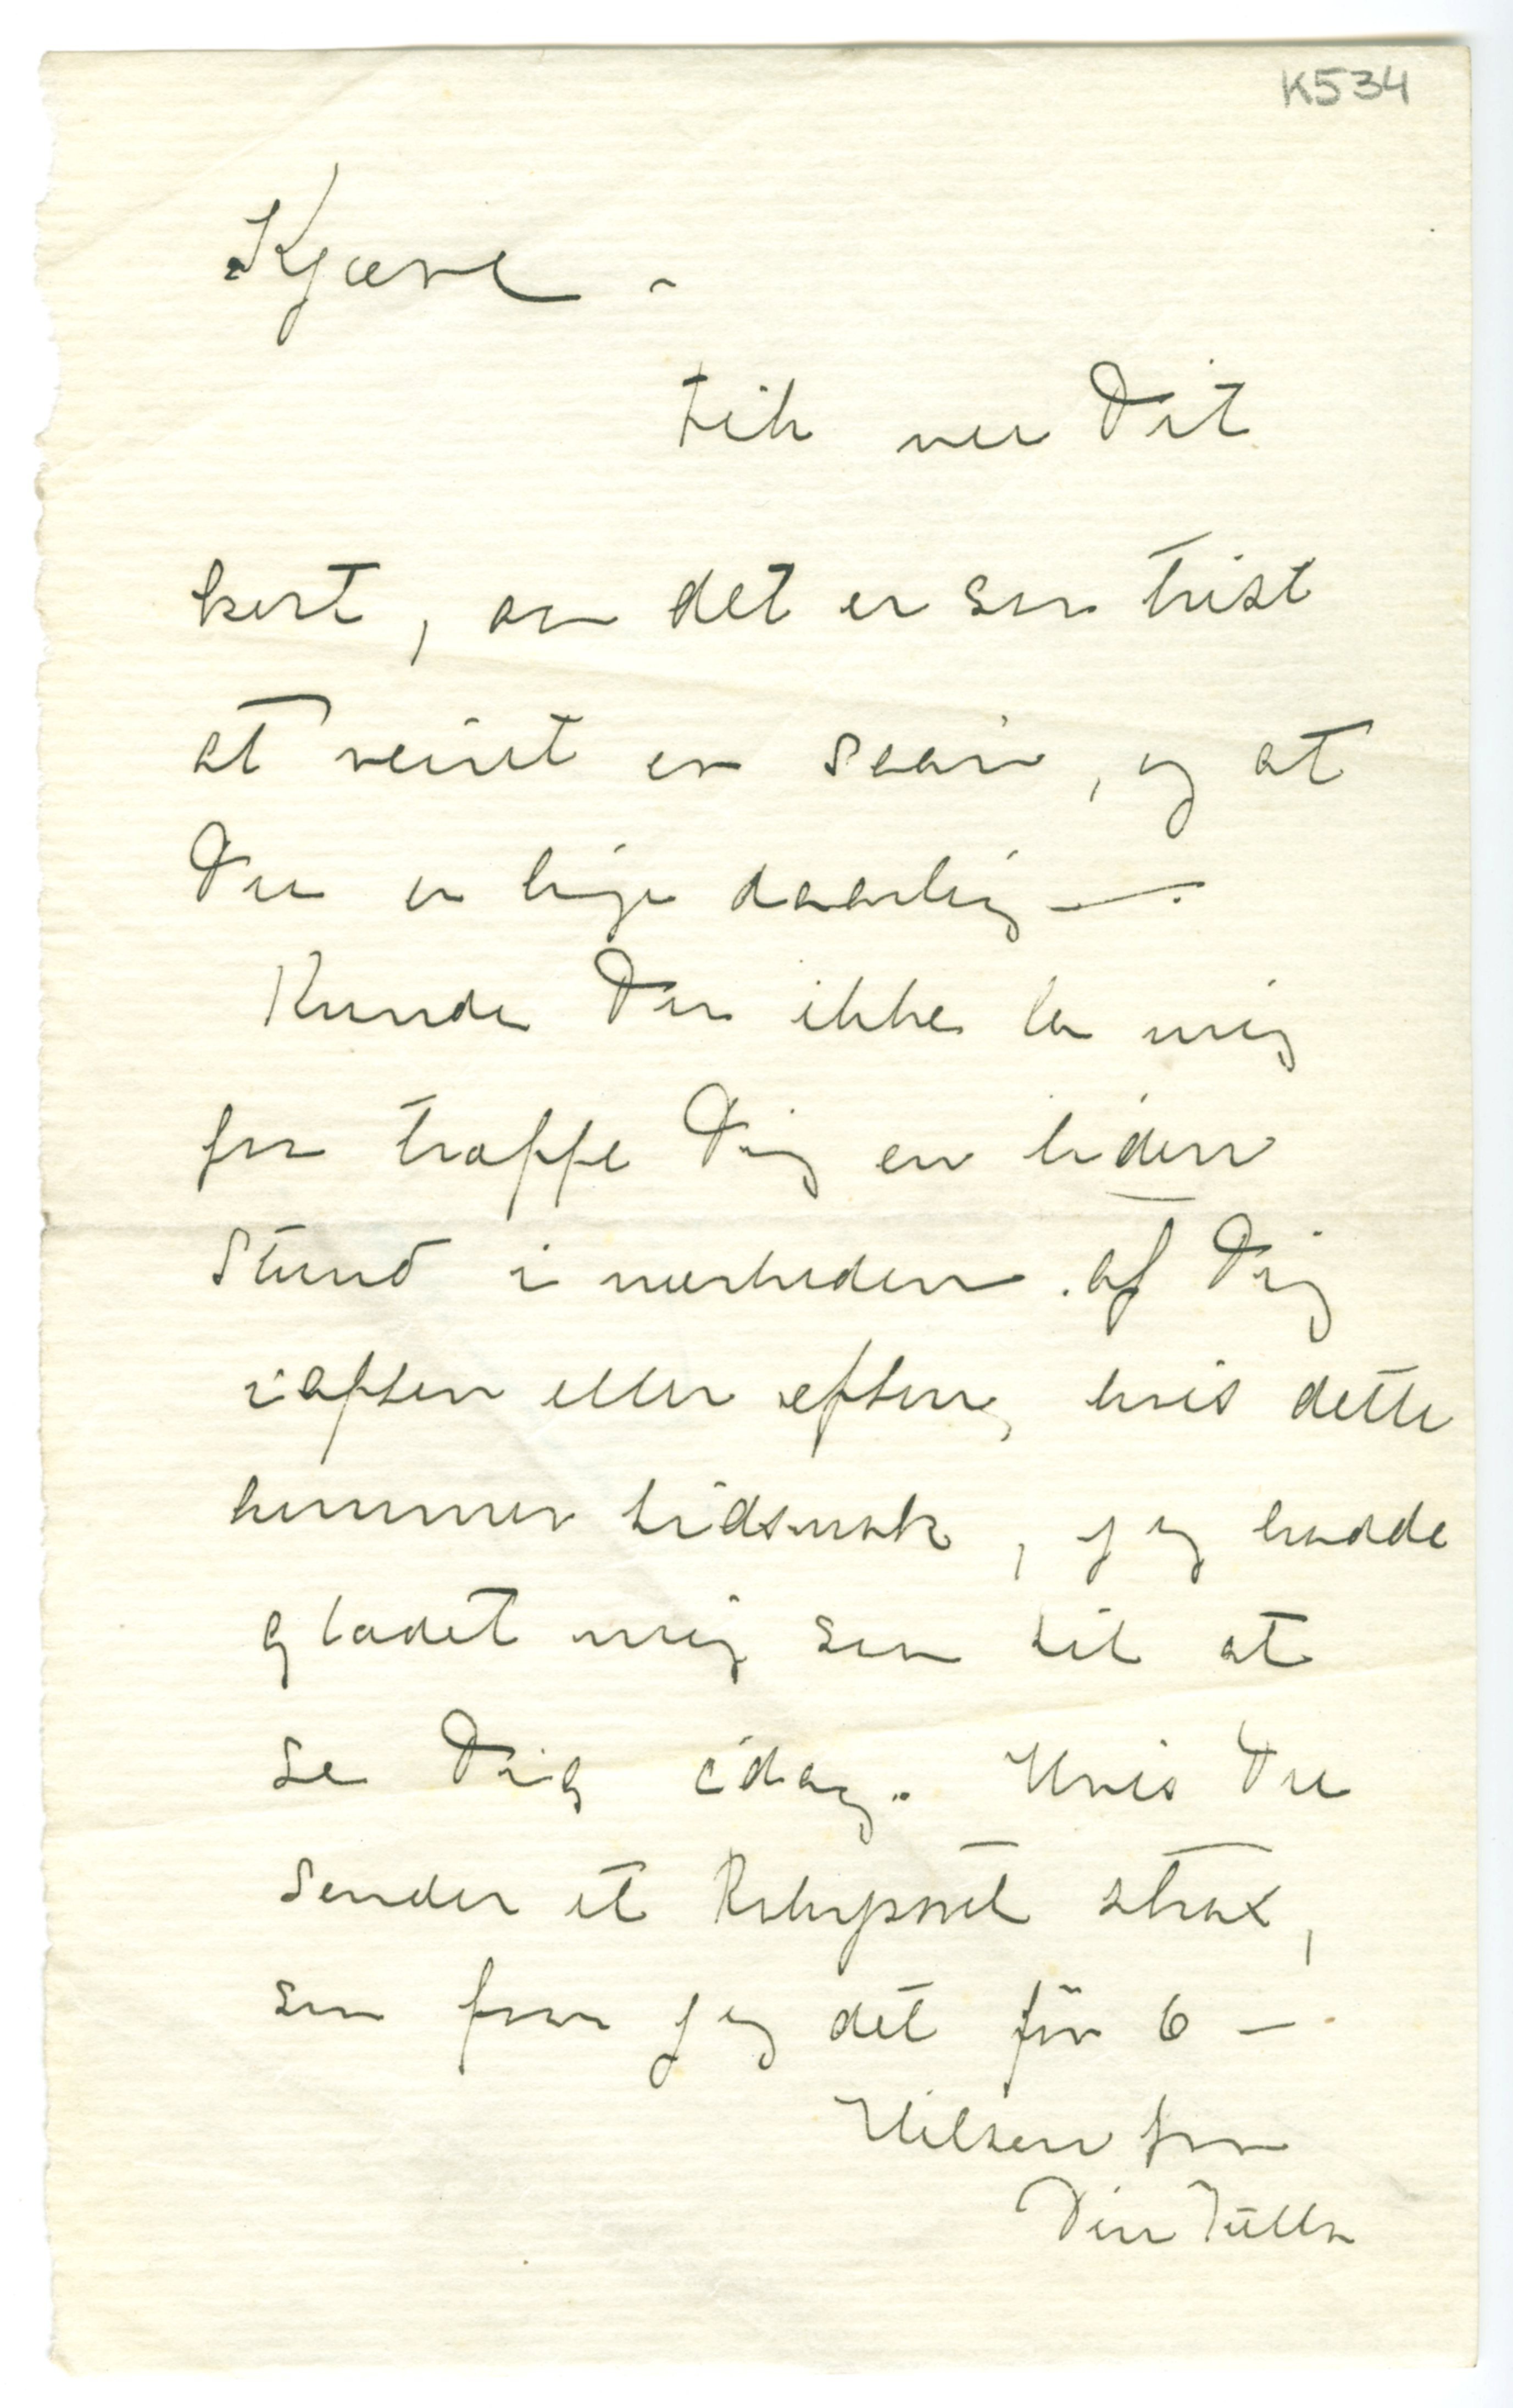 K534
Kjære –
Fik nu Dit
kort, aa det er saa trist
at veiret er saan, og at
Du er lige daarlig –.
Kunde Du ikke la mig
faa træffe Dig en liden
stund i nærheden af Dig
iaften eller efterm, hvis dette
kommer tidsnok, jeg hadde
glædet mig saa til at
se Dig idag. Hvis Du
sender et Rohrpost strax,
saa faar jeg det før 6 –
Hilsen fra
Din Tulla